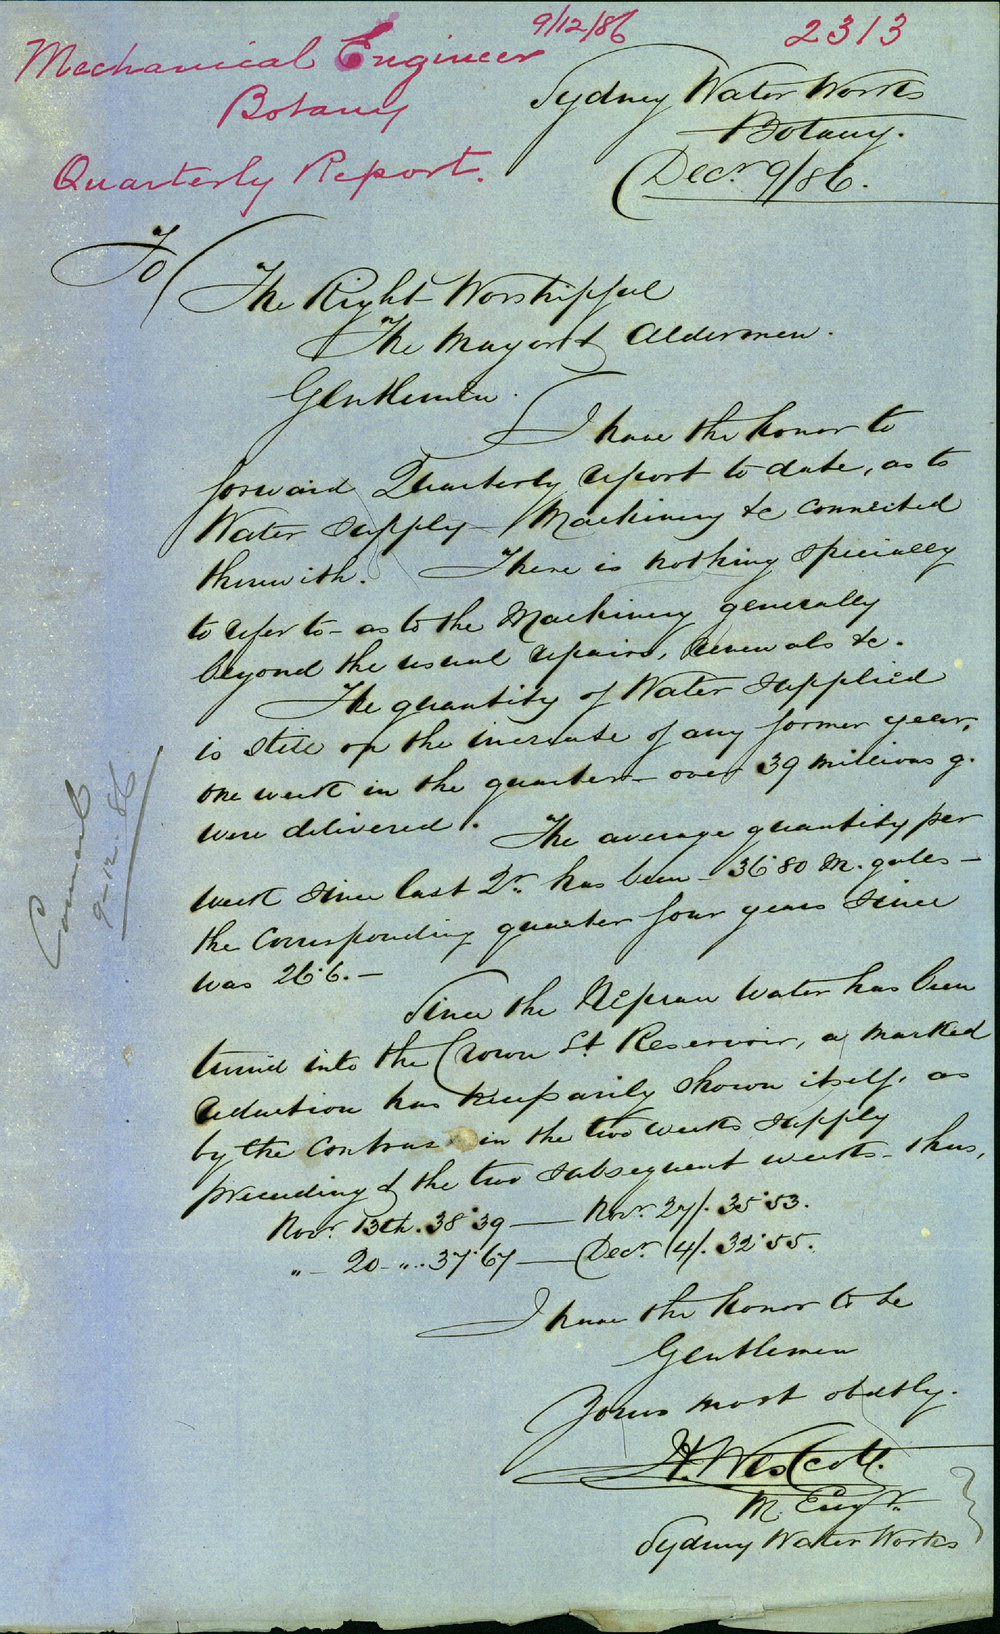 9/12/86
2313
Mechanical Engineer
Botany
Quarterly Report.
Sydney Water Works
Botany.
Decr. 9/86.
To
The Right Worshipful
The Mayor & Aldermen.
Gentlemen.
I have the honor to
forward Quarterly report to date, as to
Water Supply - Machinery &c connected
therewith. There is nothing specially
to refer to - as to the Machinery generally
beyond the usual repairs, renewals &c.
The quantity of Water supplied
is still on the increase of any former year,
one week in the quarter - over 39 millions g.
were delivered. The average quantity per
week since last Qr. has been - 36.80 M. galls -
the corresponding quarter four years since
was 26.6. -
Since the Nepean water has been
turned into the Crown St. Reservoir, a marked
reduction has necessarily shown itself, as
by the contrast in the two weeks supply
preceeding & the two subsequent weeks - thus,
Novr. 13th. 38.39 — Novr. 27/. 35.53.
" - 20 - " .. 37.67 — Decr. (4/. 32.55.
I have the honor to be
Gentlemen
Yours most obdtly.
H. Westcott.
M. Engr.
Sydney Water Works
9-12-86